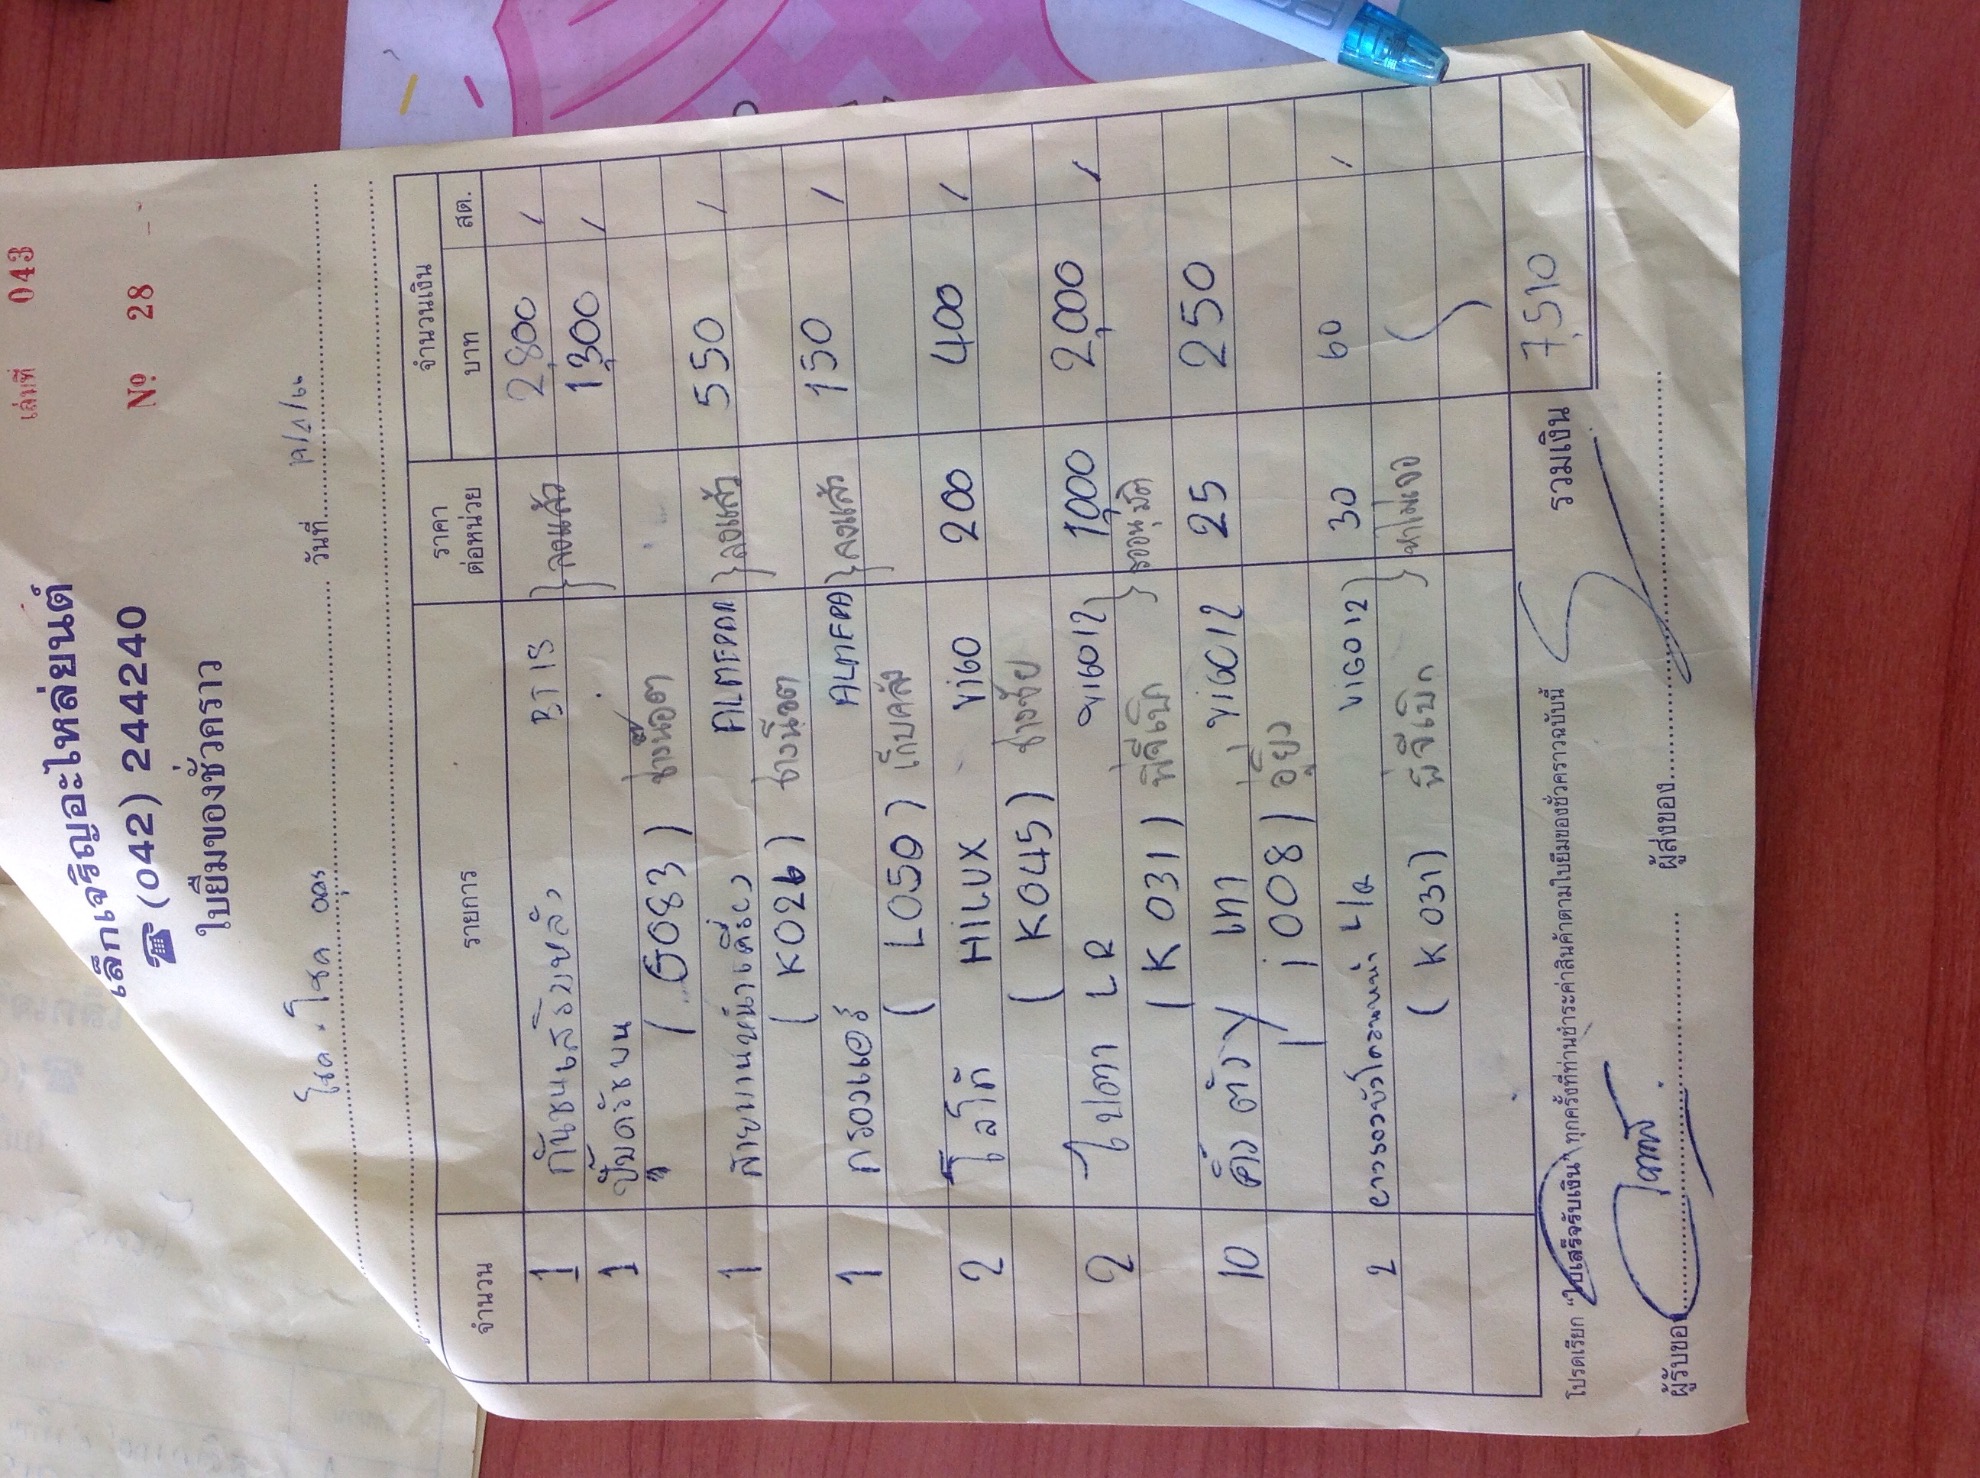 เล่มที่ 043
เล็กเจริญอะไหล่ยนต์
☎ (042) 244240
Nº 28
ใบยืมของชั่วคราว
โชค. โชค อุดร วันที่
จำนวน รายการ ราคาต่อหน่วย จำนวนเงิน
บาท สต.
1 กันชนเสริมหลัง BT 15 2,800 /
} ลงแล้ว
1 ปั๊มครัชบน 1,300 /
0083 ) ช่างน๊อต
1 สายพานหน้าเครื่อง ALMERA 550 /
( K026 ) } ลงแล้ว
1 กรองแอร์ ALMERA 150 /
( L050 ) เก็บคลัง } ลงแล้ว
2 โลโก้ HILUX VIGO 200 400 /
( K045 ) ช่างชัย
2 ไฟตา LR VIGO12 1,000 2,000 /
( K 031 ) พี่จีเบิก } รออนุมัติ
10 คิ้ว ตัว Y เทา VIGO12 25 250
008 )
2 ยางรองหัวโครงหน้า L/R VIGO12 30 60 /
( K 031 ) พี่จีเบิก } หาไม่เจอ
รวมเงิน 7,510
โปรดเรียก "ใบเสร็จรับเงิน" ทุกครั้งที่ท่านชำระค่าสินค้าตามใบยืมของชั่วคราวฉบับนี้
ผู้รับของ ผู้ส่งของ